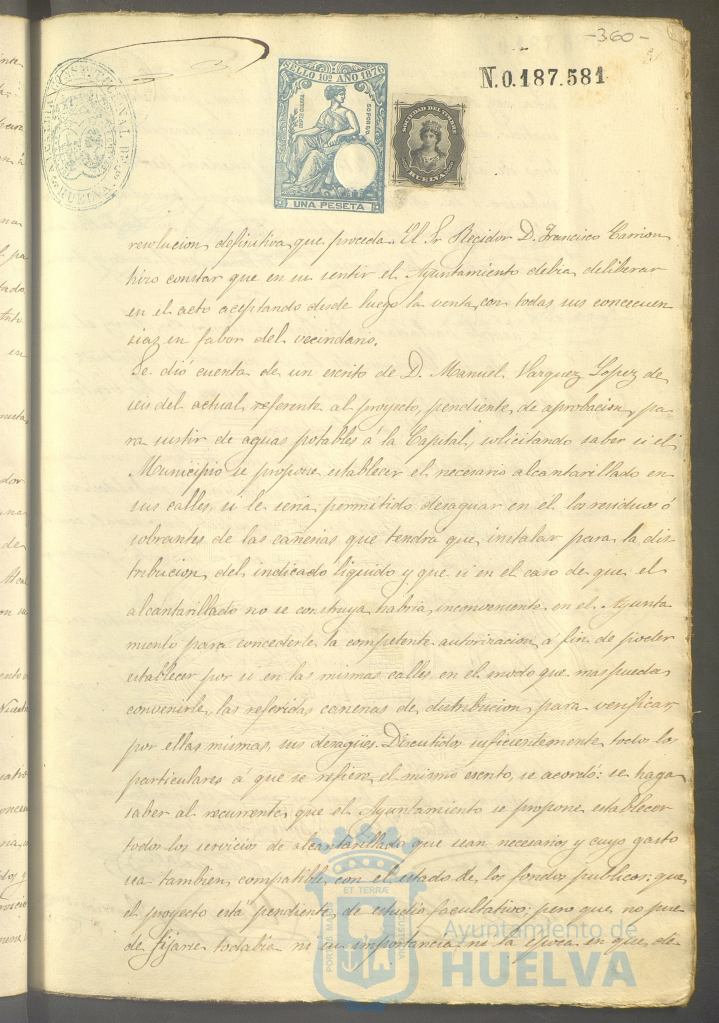 -360-
SELLO 10º AÑO 1876
UNA PESETA
SOCIEDAD DEL TIMBRE
HUELVA
N.0.187.581
HUELVA
resolucion definitiva que proceda. El Sr Regidor D. Francisco Carrion
hizo constar que en su sentir el Ayuntamiento debia deliberar
en el acto aceptando desde luego la venta con todas sus concecuen
sias en fabor del vecindario.
Se dió cuenta de un escrito de D. Manuel Vazquez Lopez de
seis del actual, referente al proyecto, pendiente de aprobacion, pa
ra surtir de aguas potables á la Capital, solicitando saber si el
Municipio se propone establecer el necesario alcantarillado en
sus calles, si le seria permitido desaguar en él los residuos ó
sobrantes de las cañerias que tendrá que instalar para la dis
tribucion del indicado liquido y que si en el caso de que el
alcantarillado no se construya habria inconveniente en el Ayunta
miento para concederle la competente autorizacion a fin de poder
establecer por si en las mismas calles en el modo que mas pueda
convenirle, las referidas cañerias de distribucion para verificar
por ellas mismas sus desagües. Discutidos suficientemente todos los
particulares á que se refiere el mismo escrito, se acordó: se haga
saber al recurrente que el Ayuntamiento se propone establecer
todos los servicios de alcantarillado que sean necesarios y cuyo gasto
sea tambien compatible con el estado de los fondos publicos; que
el proyecto está pendiente de estudio facultativo; pero que no pue
de fijarse todabia ni su importancia ni la época en que de
PORTUS MARIS
ET TERRÆ
Ayuntamiento de
HUELVA